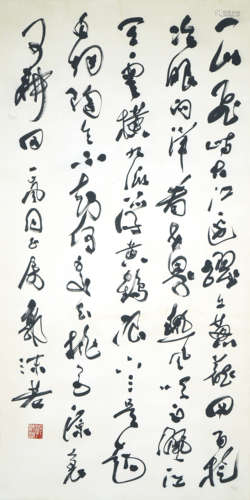 一山飞峙大江边跃上葱茏四百旋
冷眼向洋看世界热风吹雨洒江
天云横九派浮黄鹤浪下三吴起
白烟陶令不知何处去桃花源里
可耕田 郭沫若